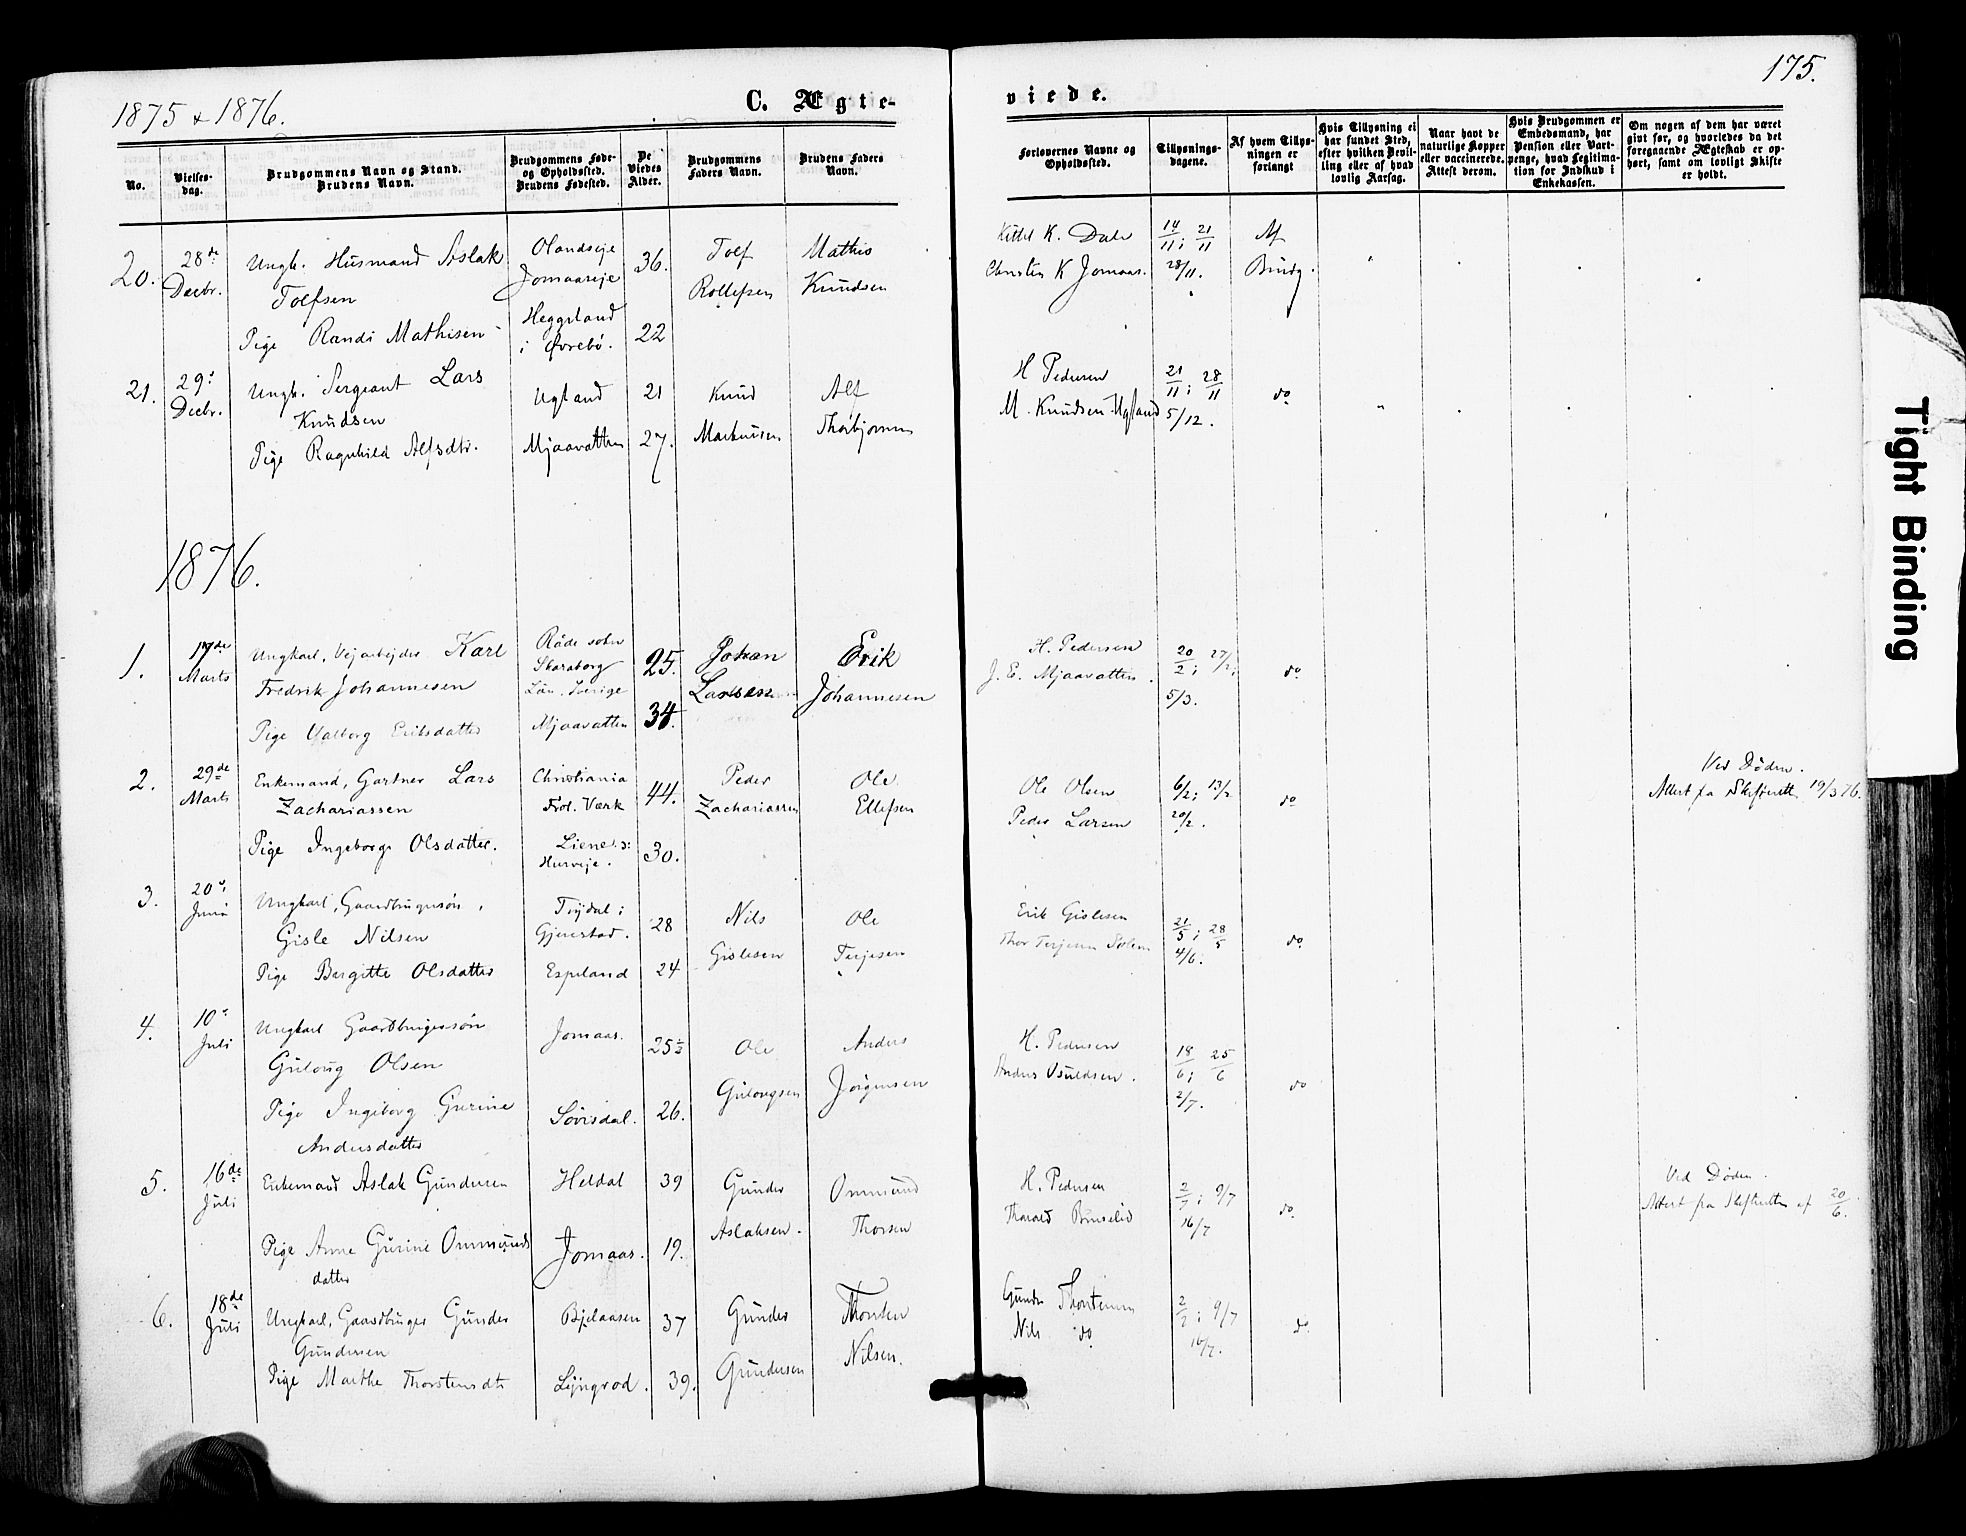 1875 & 1876.
C. Ægte-
viede.
175.
No.
Vielses-
dag.
Brudgommens Navn og Stand.
Brudens Navn.
Brudgommens Føde-
og Opholdssted.
Brudens Fødested.
De
Viedes
Alder.
Brudgommens
Faders Navn.
Brudens Faders
Navn.
Forlovernes Navne og
Opholdssted.
Tillysnings-
dagene.
Af hvem Tillys-
ningen er
forlangt
Hvis Tillysning ei
har fundet Sted,
efter hvilken Bevil-
ling eller af hvad
lovlig Aarsag.
Naar havt de
naturlige Kopper
eller vaccinerede.
Attest derom.
Hvis Brudgommen er
Embedsmand, har
Pension eller Vart-
penge, hvad Legitima-
tion for Indskud i
Enkekassen.
Om nogen af dem har været
givt før, og hvorledes da det
foregaaende Ægteskab er op-
hørt, samt om lovligt Skifte
er holdt.
20. 28de Decbr.
Ungk. Husmand Aslak
Tolfsen
Pige Randi Mathisen
Olandseje
Jomaaseje
Heggeland
i Øvrebø.
36.
22
Tolf
Rollefsen
Mathis
Knudsen
Kittel K. Dale
Christen K Jomaas.
14/11; 21/11
28/11.
Af
Brudg.
21. 29de Decbr.
Ungk. Sergeant Lars
Knudsen
Pige Ragnhild Alfsdtr.
Ugland
Mjaavatten
21
27.
Knud
Markussen
Alf
Thorbjørnsen
H Pedersen
M. Knudsen Ugland
21/11; 28/11
5/12.
do
1876.
1. 17de Marts
Ungkarl, Vejarbejder Karl
Fredrik Johannesen
Pige Valborg Eriksdatter
Råde sokn
Skaraborg
Län, Sverige
Mjaavatten
25.
34.
Johan
Larsen
Erik
Johannesen
H. Pedersen
J. E. Mjaavatten.
20/2; 27/2;
5/3.
do
2. 29de Marts
Enkemand, Gartner Lars
Zachariassen
Pige Ingeborg Olsdatter.
Christiania
Frol. Værk
Liene
Husveje.
44.
30.
Peder
Zachariassen
Ole
Ellefsen
Ole Olsen
Peder Larsen
6/2; 13/2
20/2.
do
Ved Døden.
Attest fra Skifterett 19/3 76.
3. 20de Juni
Ungkarl, Gaardbrugersøn,
Gisle Nilsen
Pige Birgitte Olsdatter
Trydal i
Gjerestad.
Espeland
28
24
Nils
Gislesen
Ole
Terjesen
Erik Gislesen
Thor Terjesen
21/5; 28/5
4/6.
do
4. 10de Juli
Ungkarl Gaardbrugersøn
Guloug Olsen
Pige Ingeborg Gurine
Andersdatter
Jomaas.
Søvisdal.
25½
26.
Ole
Gulougsen
Anders
Jørgensen
H. Pedersen
Anders Osuldsen.
18/6; 25/6
2/7.
do
5. 16de Juli
Enkemand Aslak Gundersen
Pige Anne Gurine Ommunds
datter
Heldal
Jomaas.
39
19.
Gunder
Aslaksen.
Ommund
Thorsen
H. Pedersen
Tharald
2/7; 9/7
16/7
do
Ved Døden.
Attest fra Skifteretten af 20/6.
6. 18de Juli
Ungkarl, Gaardbruger Gunder
Gundersen
Pige Marthe Thorstensdtr
Bjelaasen
Lyngrod.
37
39.
Gunder
Gundersen
Thorsten
Nilsen.
Gunder Thorstensen
Nils do
2/7; 9/7
16/7.
do
Tight Binding